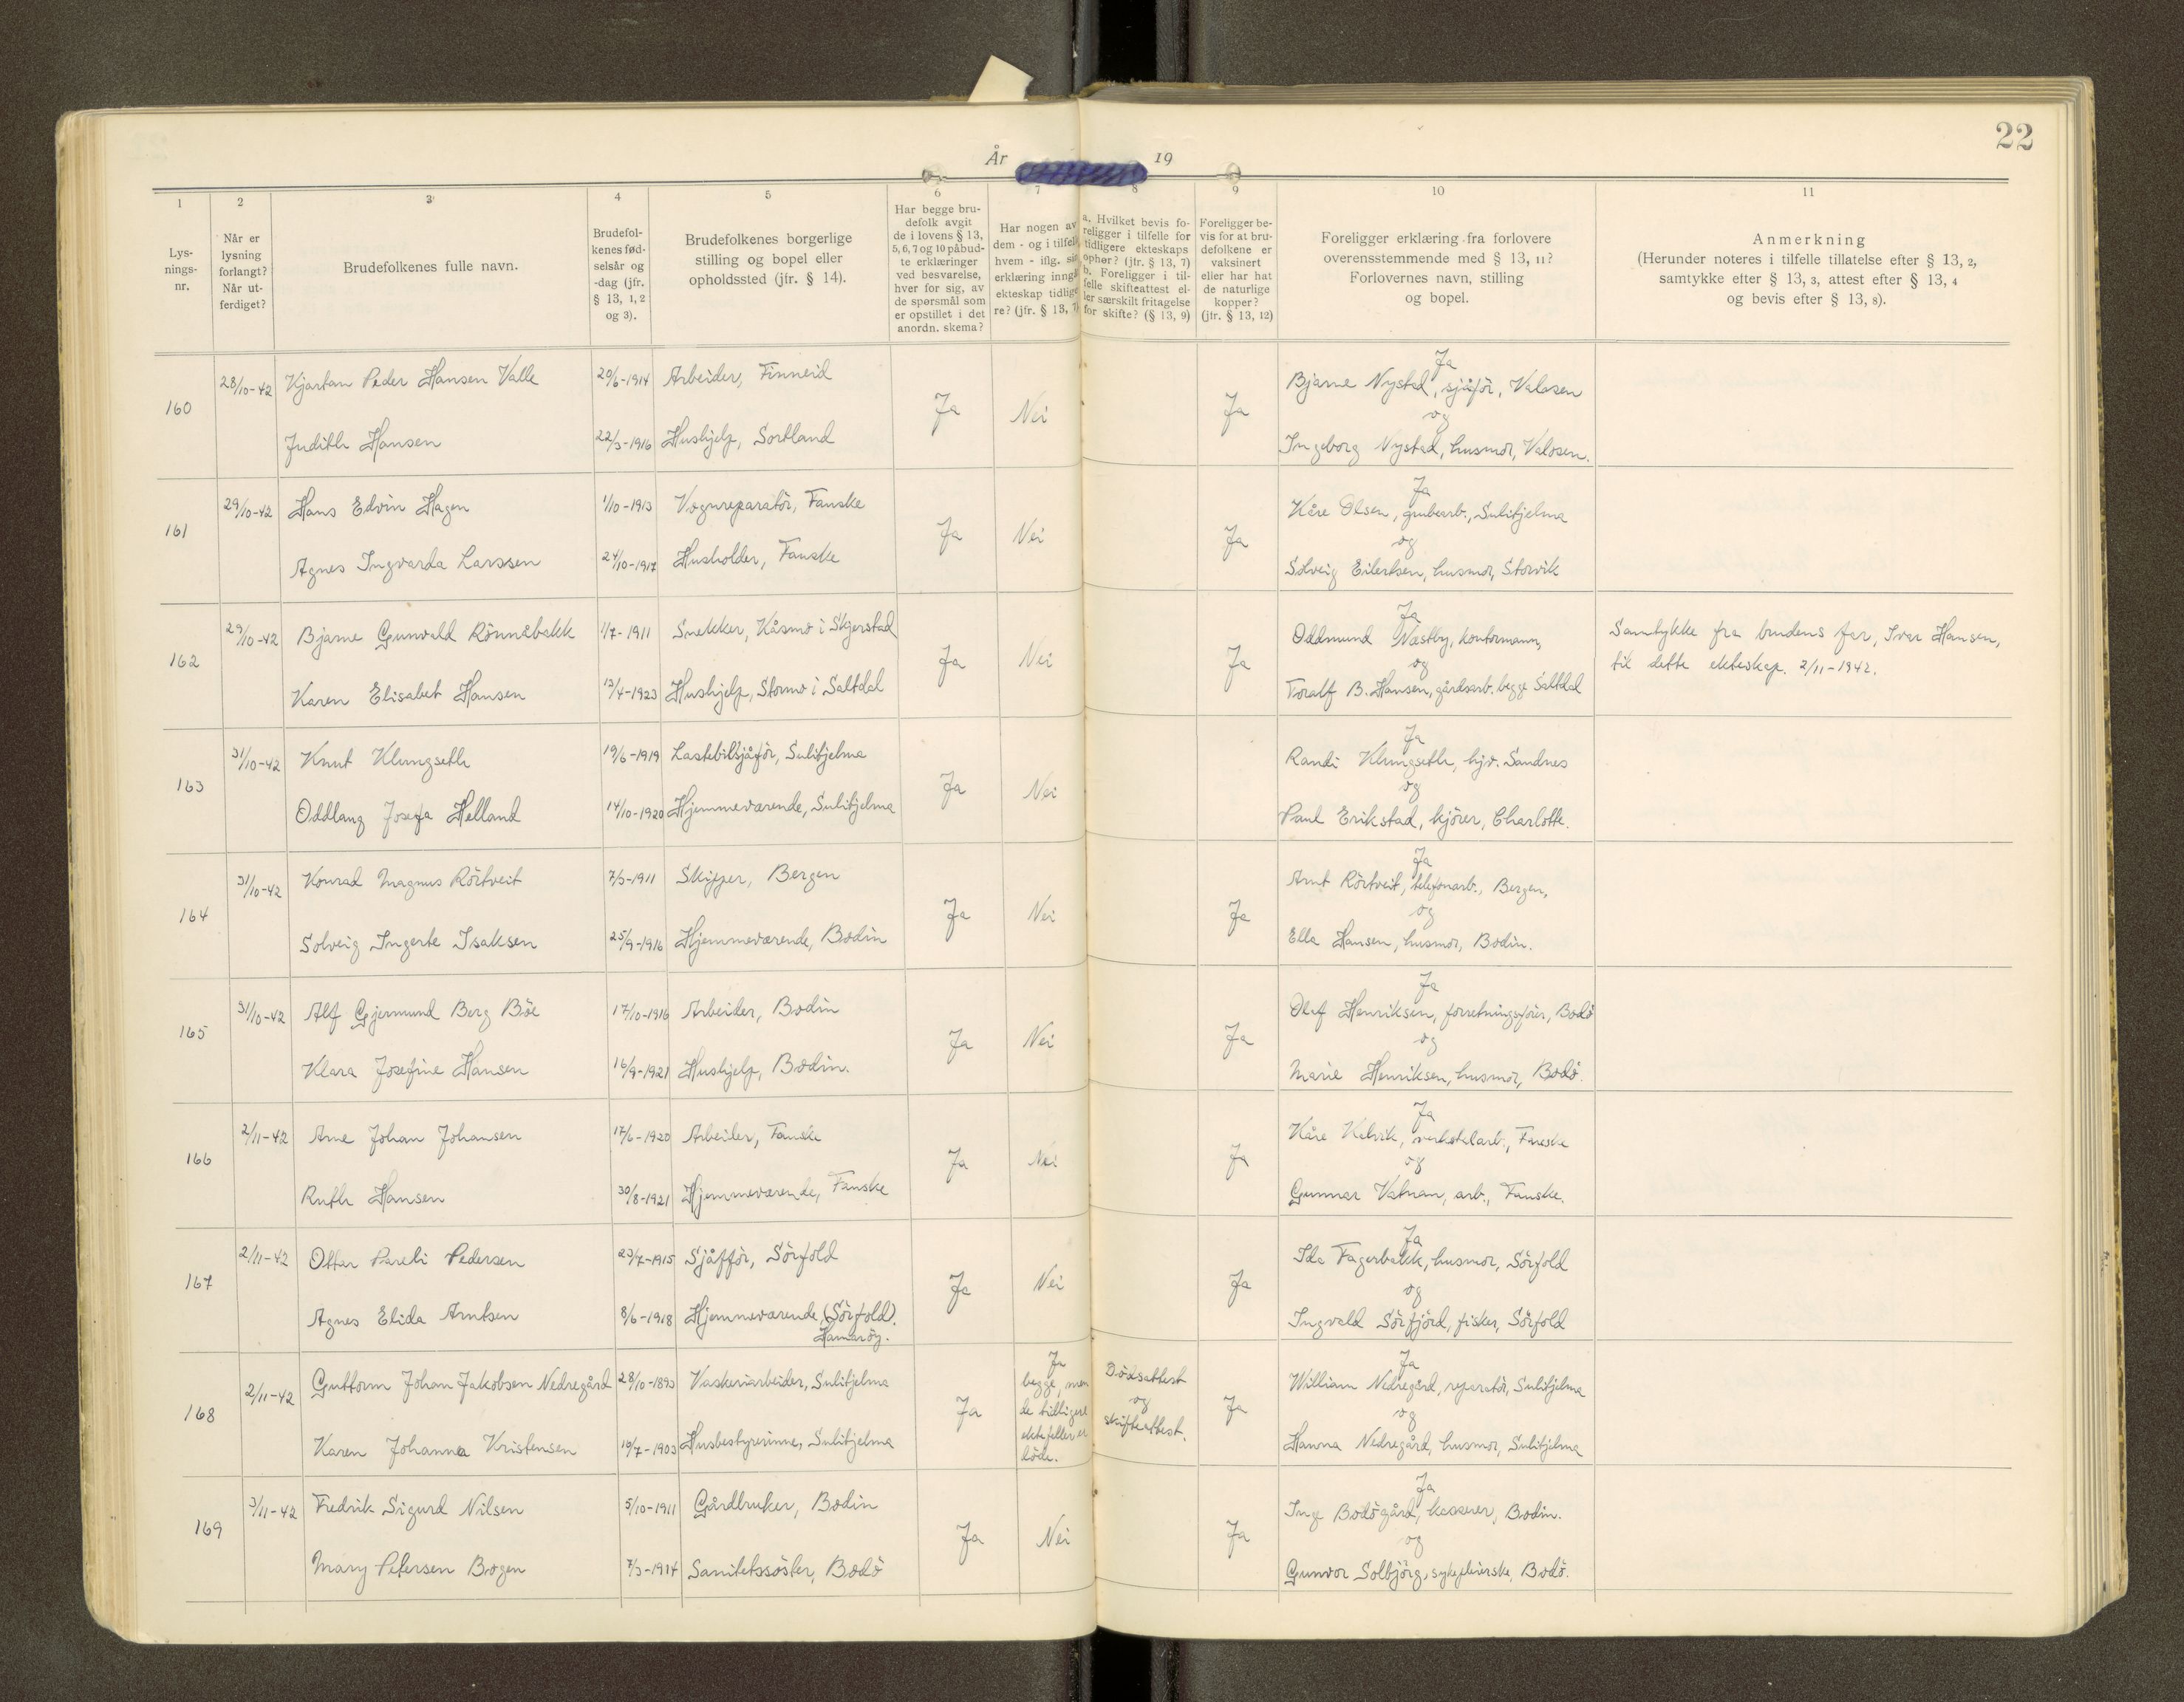 22
År 19
1 2 3 4 5 6 7 8 9 10 11
Lys-
nings-
nr.
Når er
lysning
forlangt?
Når ut-
ferdiget?
Brudefolkenes fulle navn.
Brudefol-
kenes fød-
selsår og
-dag (jfr.
§ 13, 1, 2
og 3).
Brudefolkenes borgerlige
stilling og bopel eller
opholdssted (jfr. § 14).
Har begge bru-
defolk avgit
de i lovens § 13,
5, 6, 7 og 10 påbud-
te erklæringer
ved besvarelse,
hver for sig, av
de spørsmål som
er opstillet i det
anordn. skema?
Har nogen av
dem - og i tilfelle
hvem - iflg. sin
erklæring inngå
ekteskap tidlige
re? (jfr. § 13, 7)
a. Hvilket bevis fo-
religger i tilfelle for
tidligere ekteskaps
ophør? (jfr. § 13, 7)
b. Foreligger i til-
felle skifteattest el-
ler særskilt fritagelse
for skifte? (§ 13, 9)
Foreligger be-
vis for at bru-
defolkene er
vaksinert
eller har hat
de naturlige
kopper?
(jfr. § 13, 12)
Foreligger erklæring fra forlovere
overensstemmende med § 13, 11?
Forlovernes navn, stilling
og bopel.
Anmerkning
(Herunder noteres i tilfelle tillatelse efter § 13, 2,
samtykke efter § 13, 3, attest efter § 13, 4
og bevis efter § 13, 8).
160 28/10-42 Kjartan Peder Hansen Valle 20/6-1914 Arbeider, Finneid
Judith Hansen 22/3-1916 Hushjelp, Sortland
Ja Nei Ja
Ja
Bjarne Nystad, sjåfør, Valosen
og
Ingeborg Nystad, husmor, Valosen.
161 29/10-42 Hans Edvin Hagen 1/10-1913 Vognreparatör, Fauske
Agnes Ingvarda Larssen 24/10-1917 Husholder, Fauske
Ja Nei Ja
Ja
Kåre Olsen, grubearb., Sulitjelma
og
Solveig Eilertsen, husmor, Storvik
162 29/10-42 Bjarne Gunvald Rönnåbakk 1/7-1911 Snekker, Kåsmo i Skjerstad
Karen Elisabet Hansen 13/4-1923 Hushjelp, Stormo i Saltdal
Ja Nei Ja
Ja
Oddmund Næstby, kontormann,
og
Toralf B. Hansen, gårdsarb. begge Saltdal
Samtykke fra brudens far, Ivar Hansen,
til dette ekteskap. 2/11-1942.
163 31/10-42 Knut Klungseth 19/6-1919 Lastebilsjåför, Sulitjelma
Oddlaug Josefa Helland 14/10-1920 Hjemmeværende, Sulitjelma
Ja Nei
Ja
Randi Klungseth, hjv. Sandnes
og
Paul Erikstad, kjörer, Charlotte.
164 31/10-42 Konrad Magnus Rörtveit 7/3-1911 Skipper, Bergen
Solveig Ingerte Isaksen 25/9-1916 Hjemmeværende, Bodin
Ja Nei Ja
Ja
Arnt Rörtveit, telefonarb., Bergen,
og
Ella Hansen, husmor, Bodin.
165 31/10-42 Alf Gjermund Berg Böe 17/10-1916 Arbeider, Bodin
Klara Josefine Hansen 16/9-1921 Hushjelp, Bodin.
Ja Nei Ja
Ja
Olaf Henriksen, forretningsförer, Bodö
og
Marie Henriksen, husmor, Bodö.
166 2/11-42 Arne Johan Johansen 17/6-1920 Arbeider, Fauske
Ruth Hansen 30/8-1921 Hjemmeværende, Fauske
Ja Nei Ja
Ja
Kåre Kelvik, verkstedarb., Fauske
og
Gunnar Vatnan, arb., Fauske.
167 2/11-42 Ottar Pareli Pedersen 23/7-1915 Sjåfför, Sörfold
Agnes Elida Arntsen 8/6-1918 Hjemmeværende, (Sörfold).
Hamaröy.
Ja Nei Ja
Ja
Ida Fagerbakk, husmor, Sörfold
og
Ingvald Sörfjord, fisker, Sörfold
168 2/11-42 Guttorm Johan Jakobsen Nedregård 28/10-1893 Vaskeriarbeider, Sulitjelma
Karen Johanna Kristensen 19/7-1903 Husbestyrerinne, Sulitjelma
Ja
Ja
begge, men
de tidligere
ektefeller er
döde.
Dödsattest
og
skifteattest.
Ja
Ja
William Nedregård, reparatör, Sulitjelma
og
Hanna Nedregård, husmor, Sulitjelma
169 3/11-42 Fredrik Sigurd Nilsen 5/10-1911 Gårdbruker, Bodin
Mary Petersen Bogen 7/3-1914 Sanitetssöster, Bodö
Ja Nei Ja
Ja
Inge Bodögård, kasserer, Bodin.
og
Gunvor Solbjörg, sykepleierske, Bodö.